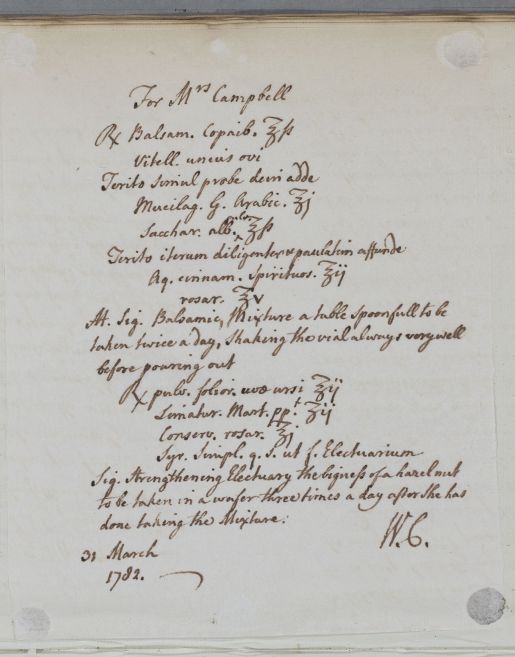 For Mrs Campbell
℞ Balsam. Copaib. ℥ſs
Vitell. unius ovi
Terito simul probe dein adde
Mucilag. G. Arabic. ℥j
Sacchar. alb.
Terito iterum diligenter & paulatim affunde
Aq. cinnam. spirituos. ℥ij
rosar. ℥v
M. Sig. Balsamic, Mixture a table spoonfull to be
taken twice a day, shaking the vial always very well
before pouring out
℞ pulv. folior. uvæ ursi ʒij
Limatur. Mart. ppt. ʒij
Conserv. rosar. ℥j
Syr. Simpl. q. s. ut f. Electuarium
Sig. Strengthening Electuary the bigness of a hazel nut
to be taken in a wafer three times a day after she has
done taking the Mixture:
W. C.
31 March
1782.